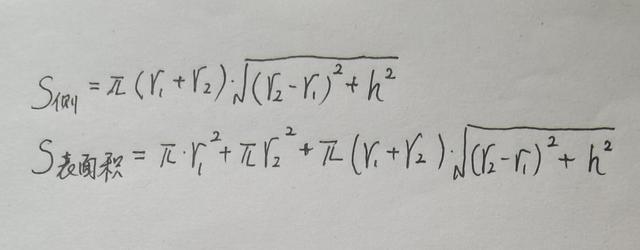 S侧 = π(r₁+r₂)·√((r₂-r₁)²+h²)
S表面积 = π·r₁²+πr₂²+π(r₁+r₂)·√((r₂-r₁)²+h²)